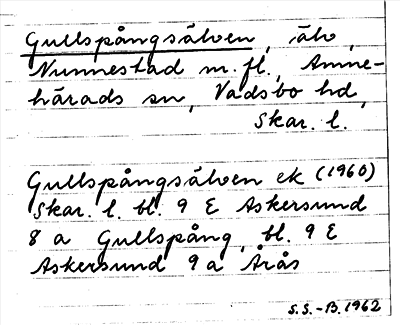 Gullspångsälven, älv,
Nunnestad m.fl., Amne-
härads sn, Vadsbo hd,
Skar. l.
Gullspångsälven ek (1960)
Skar. l. bl. 9 E Askersund
8 a Gullspång, bl. 9 E
Askersund 9 a Årås
S.S.-B. 1962